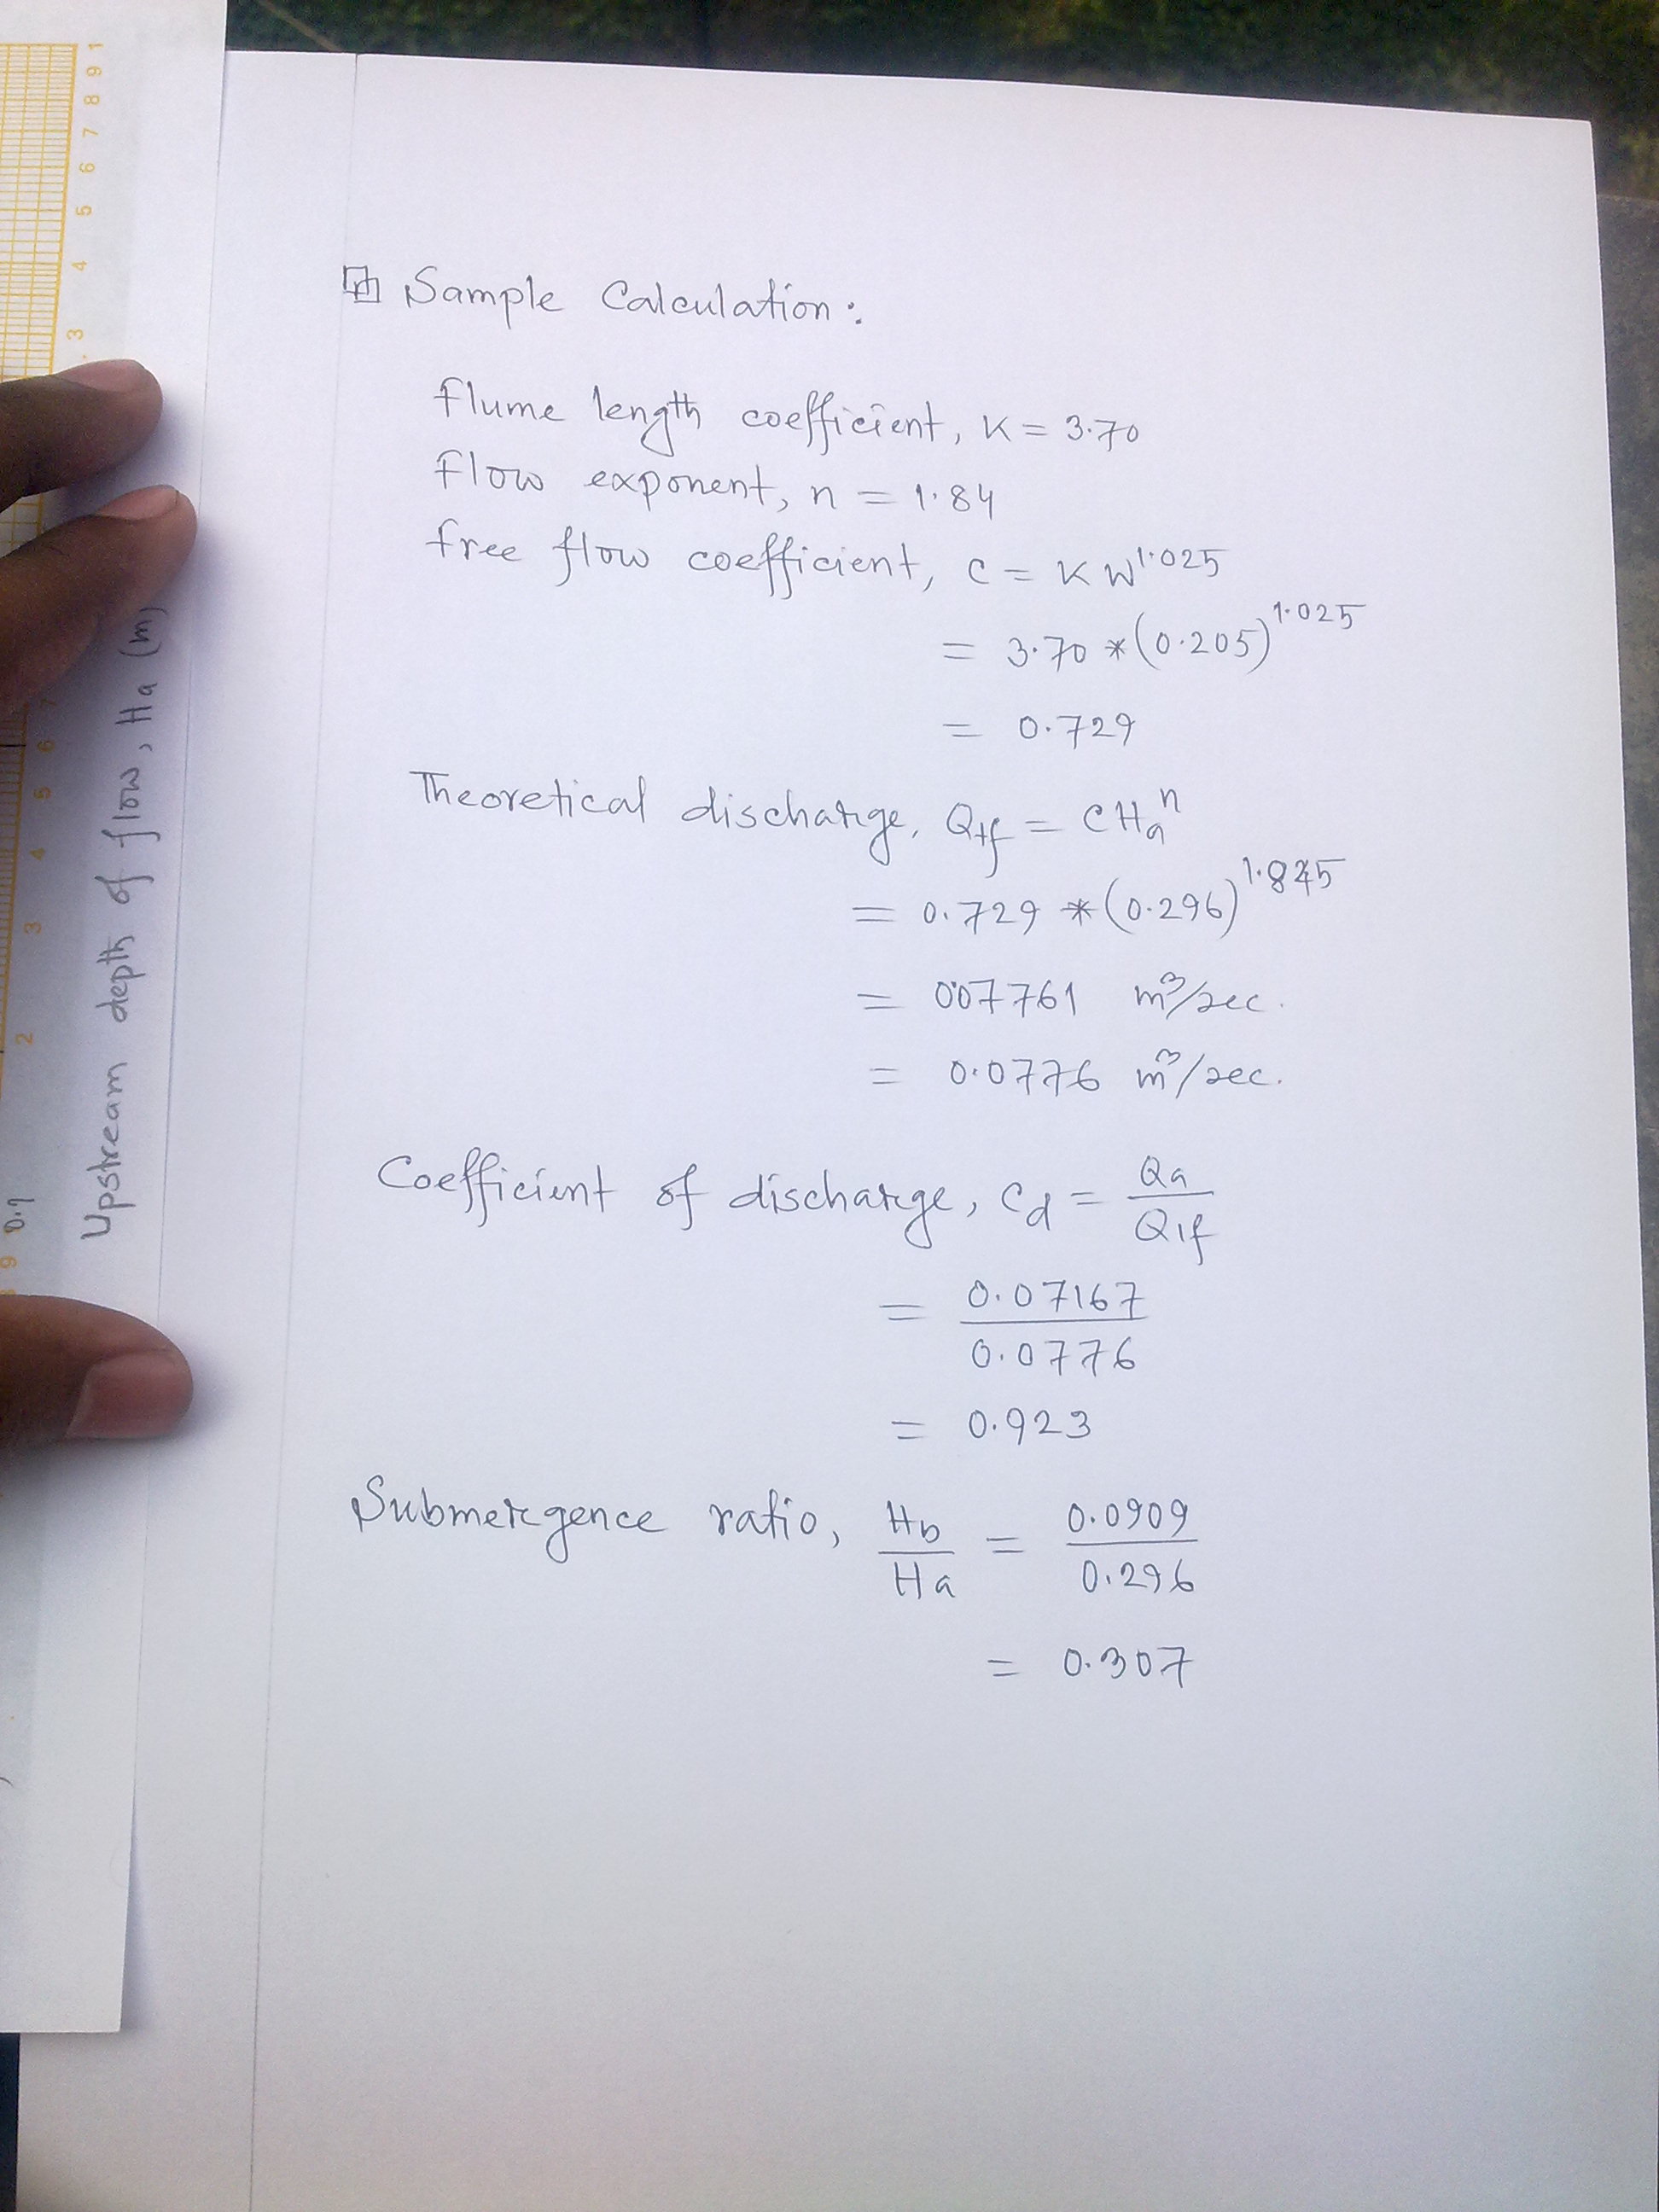 Sample Calculation:
flume length coefficient, K = 3.70
flow exponent, n = 1.84
free flow coefficient, C = KW^1.025
= 3.70 * (0.205)^1.025
= 0.729
Theoretical discharge, Qtf = CHa^n
= 0.729 * (0.296)^1.845
= 0.07761 m³/sec.
= 0.0776 m³/sec.
Coefficient of discharge, Cd = Qa/Qtf
= 0.07167/0.0776
= 0.923
Submergence ratio, Hb/Ha = 0.0909/0.296
= 0.307
Upstream depth of flow, Ha (m)
3 4 5 6 7 8 9 1
9 0.1
2 3 4 5 6 7